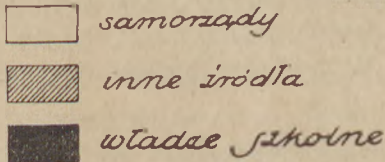 samorządy
inne źródła
władze szkolne